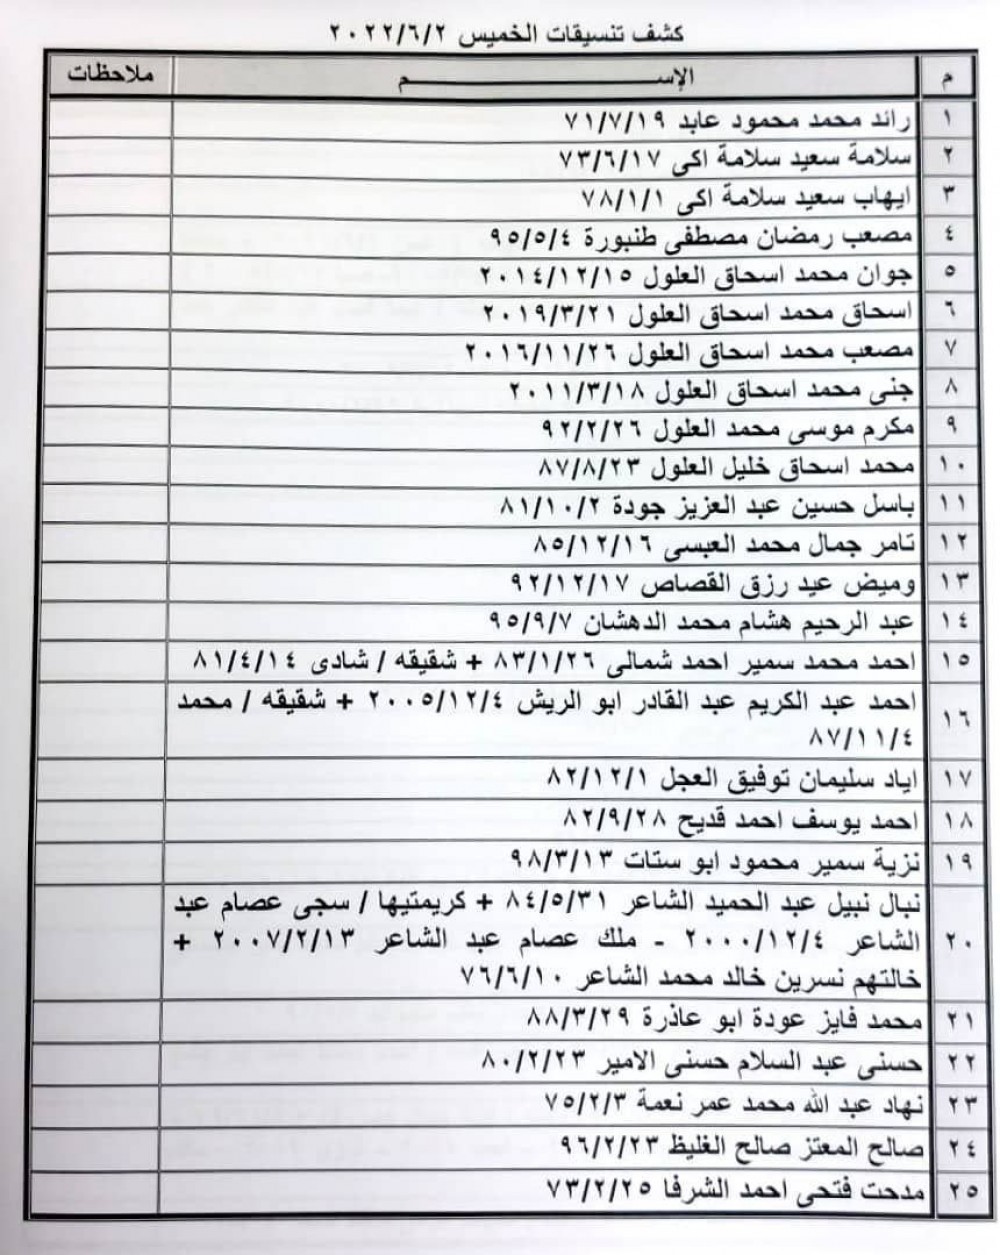 كشف تنسيقات الخميس ٢٠٢٢/٦/٢
م الإســـــــــم ملاحظات
١ رائد محمد محمود عابد ٧١/٧/١٩
٢ سلامة سعيد سلامة اكى ٧٣/٦/١٧
٣ ايهاب سعيد سلامة اكى ٧٨/١/١
٤ مصعب رمضان مصطفى طنبورة ٩٥/٥/٤
٥ جوان محمد اسحاق العلول ٢٠١٤/١٢/١٥
٦ اسحاق محمد اسحاق العلول ٢٠١٩/٣/٢١
٧ مصعب محمد اسحاق العلول ٢٠١٦/١١/٢٦
٨ جنى محمد اسحاق العلول ٢٠١١/٣/١٨
٩ مكرم موسى محمد العلول ٩٢/٢/٢٦
١٠ محمد اسحاق خليل العلول ٨٧/٨/٢٣
١١ باسل حسين عبد العزيز جودة ٨١/١٠/٢
١٢ تامر جمال محمد العبسى ٨٥/١٢/١٦
١٣ وميض عيد رزق القصاص ٩٢/١٢/١٧
١٤ عبد الرحيم هشام محمد الدهشان ٩٥/٩/٧
١٥ احمد محمد سمير احمد شمالى ٨٣/١/٢٦ + شقيقه / شادى ٨١/٤/١٤
١٦ احمد عبد الكريم عبد القادر ابو الريش ٢٠٠٥/١٢/٤ + شقيقه / محمد
٨٧/١١/٤
١٧ اياد سليمان توفيق العجل ٨٢/١٢/١
١٨ احمد يوسف احمد قديح ٨٢/٩/٢٨
١٩ نزية سمير محمود ابو ستات ٩٨/٣/١٣
نبال نبيل عبد الحميد الشاعر ٨٤/٥/٣١ + كريمتيها / سجى عصام عبد
٢٠ الشاعر ٢٠٠٠/١٢/٤ - ملك عصام عبد الشاعر ٢٠٠٧/٢/١٣ +
خالتهم نسرين خالد محمد الشاعر ٧٦/٦/١٠
٢١ محمد فايز عودة ابو عاذرة ٨٨/٣/٢٩
٢٢ حسنى عبد السلام حسنى الامير ٨٠/٢/٢٣
٢٣ نهاد عبد الله محمد عمر نعمة ٧٥/٢/٣
٢٤ صالح المعتز صالح الغليظ ٩٦/٢/٢٣
٢٥ مدحت فتحى احمد الشرفا ٧٣/٢/٢٥